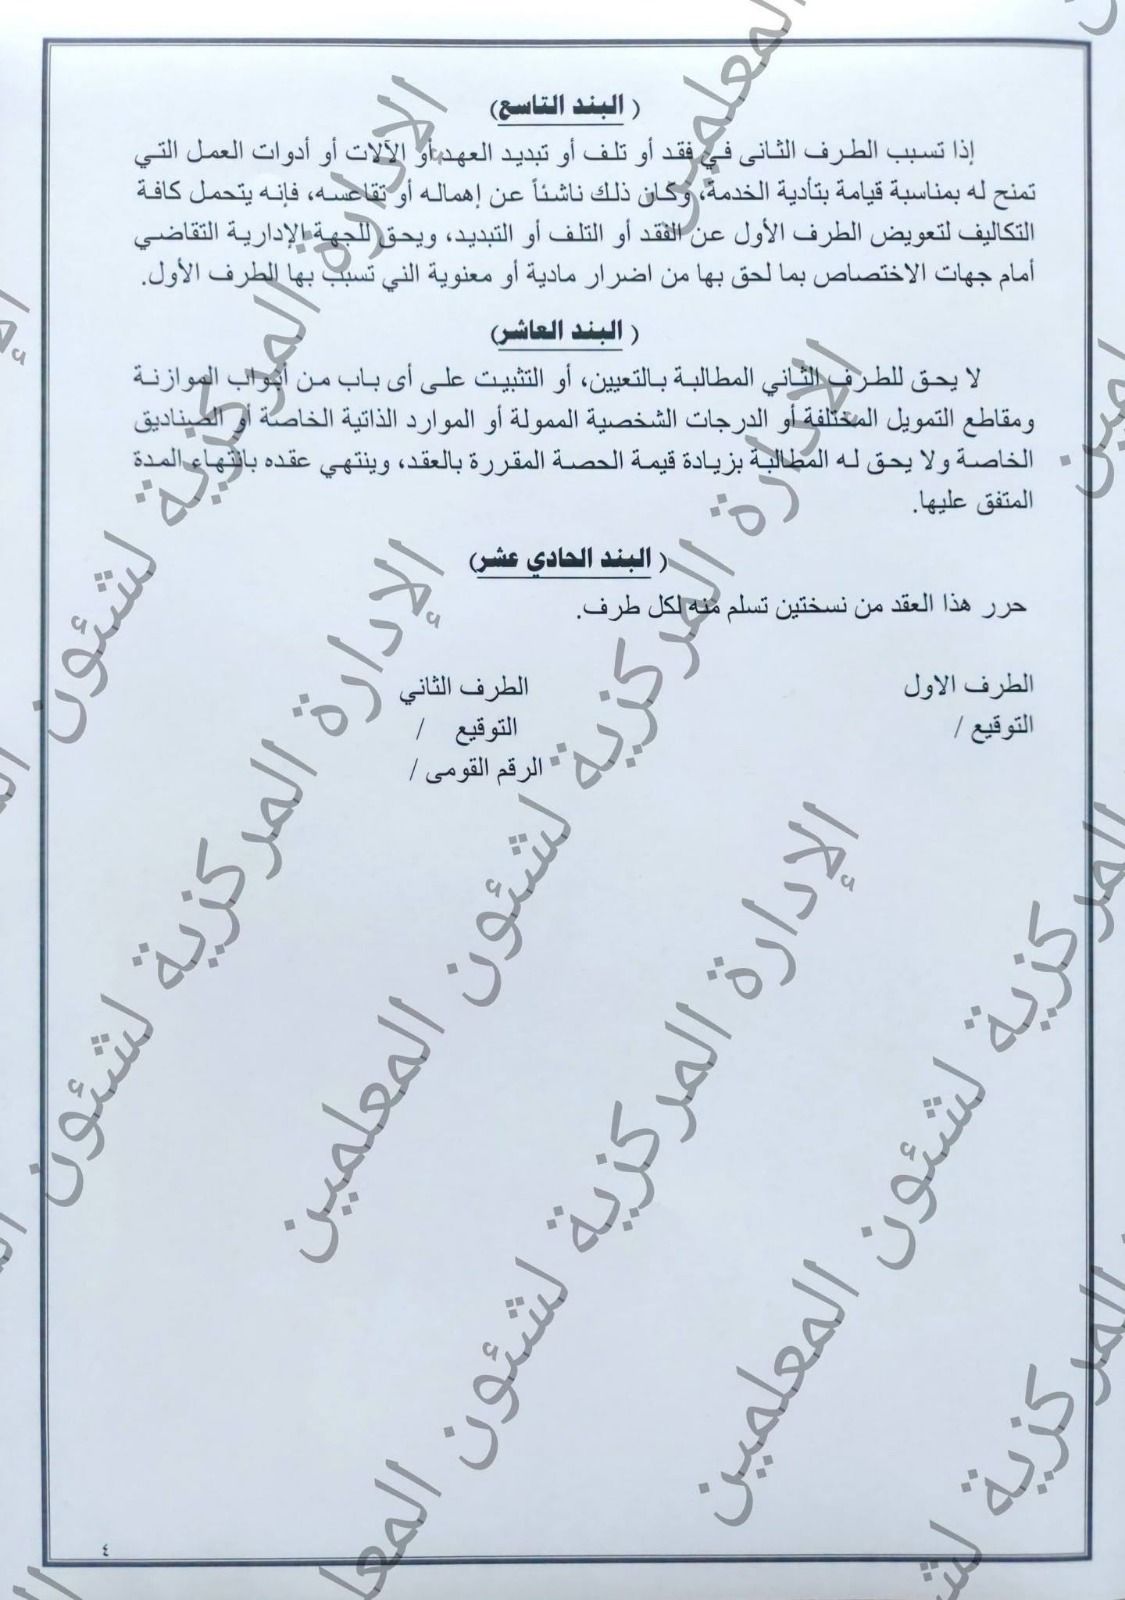 ( البند التاسع)
إذا تسبب الطرف الثانى في فقد أو تلف أو تبديد العهد أو الآلات أو أدوات العمل التي
تمنح له بمناسبة قيامة بتأدية الخدمة، وكان ذلك ناشئاً عن إهماله أو تقاعسه، فإنه يتحمل كافة
التكاليف لتعويض الطرف الأول عن الفقد أو التلف أو التبديد، ويحق للجهة الإدارية التقاضي
أمام جهات الاختصاص بما لحق بها من اضرار مادية أو معنوية التي تسبب بها الطرف الأول.
( البند العاشر)
لا يحق للطرف الثاني المطالبة بالتعيين، أو التثبيت على أى باب من أبواب الموازنة
ومقاطع التمويل المختلفة أو الدرجات الشخصية الممولة أو الموارد الذاتية الخاصة أو الصناديق
الخاصة ولا يحق له المطالبة بزيادة قيمة الحصة المقررة بالعقد، وينتهي عقده بانتهاء المدة
المتفق عليها.
( البند الحادي عشر)
حرر هذا العقد من نسختين تسلم منه لكل طرف.
الطرف الاول
الطرف الثاني
التوقيع /
التوقيع /
الرقم القومى /
الإدارة المركزية لشئون المعلمين
الإدارة المركزية لشئون المعلمين
الإدارة المركزية لشئون
الإدارة المركزية لشئون
المركزية لشئون المعلمين
المعلمين
٤